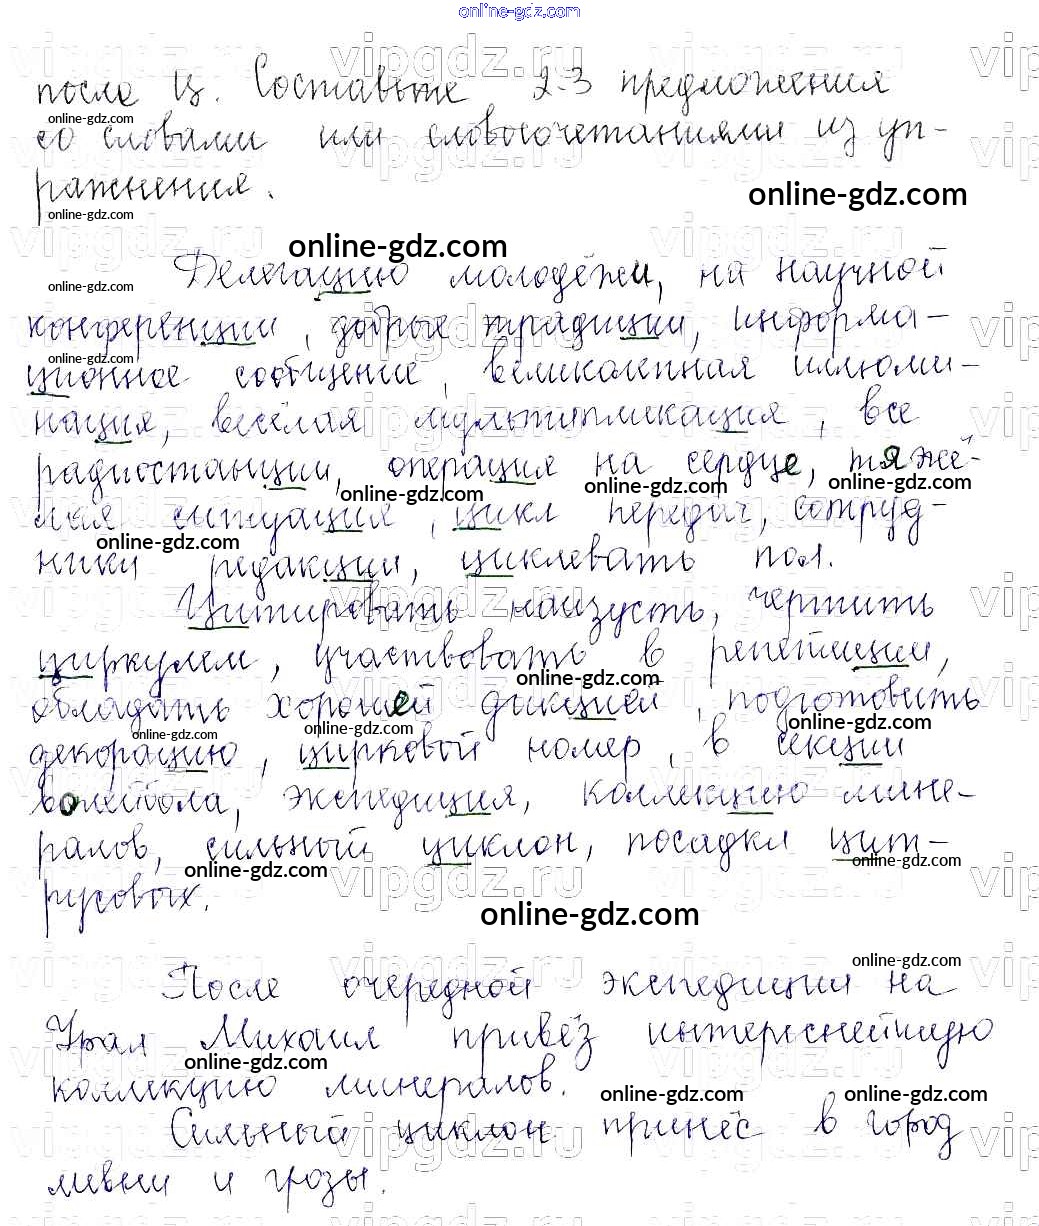 online-gdz.com
после Ц. Составьте 2-3 предложения
со словами или словосочетаниями из уп-
ражнения.
Делегацию молодёжи, на научной
конференции, добрые традиции, информа-
ционное сообщение, великолепная иллюми-
нация, весёлая мультипликация, все
радиостанции, операция на сердце, тяжё-
лая ситуация, цикл передач, сотруд-
ники редакции, циклевать пол.
Цитировать наизусть, чертить
циркулем, участвовать в репетиции,
обладать хорошей дикцией, подготовить
декорацию, цирковой номер, в секции
волейбола, экспедиция, коллекцию мине-
ралов, сильный циклон, посадка цит-
русовых.
После очередной экспедиции на
Урал Михаил привёз интереснейшую
коллекцию минералов.
Сильный циклон принёс в город
ливни и грозы.